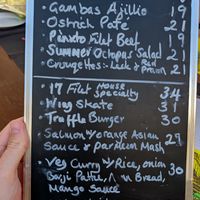 • Gambas Ajillo 19
• Ostrich Paté 21
• Filet Beef 19
• Summer Octopus Salad 21
• Courgettes:- Leek & Red Prawn 21
• 17 Filet House Speciality 34
• Wing Skate 31
• Truffle Burger 30
• Salmon w/ orange Asian Sauce & Mash 29
• Veg Curry w/ Rice, onion 30
Baji Bread,
Mango Sauce